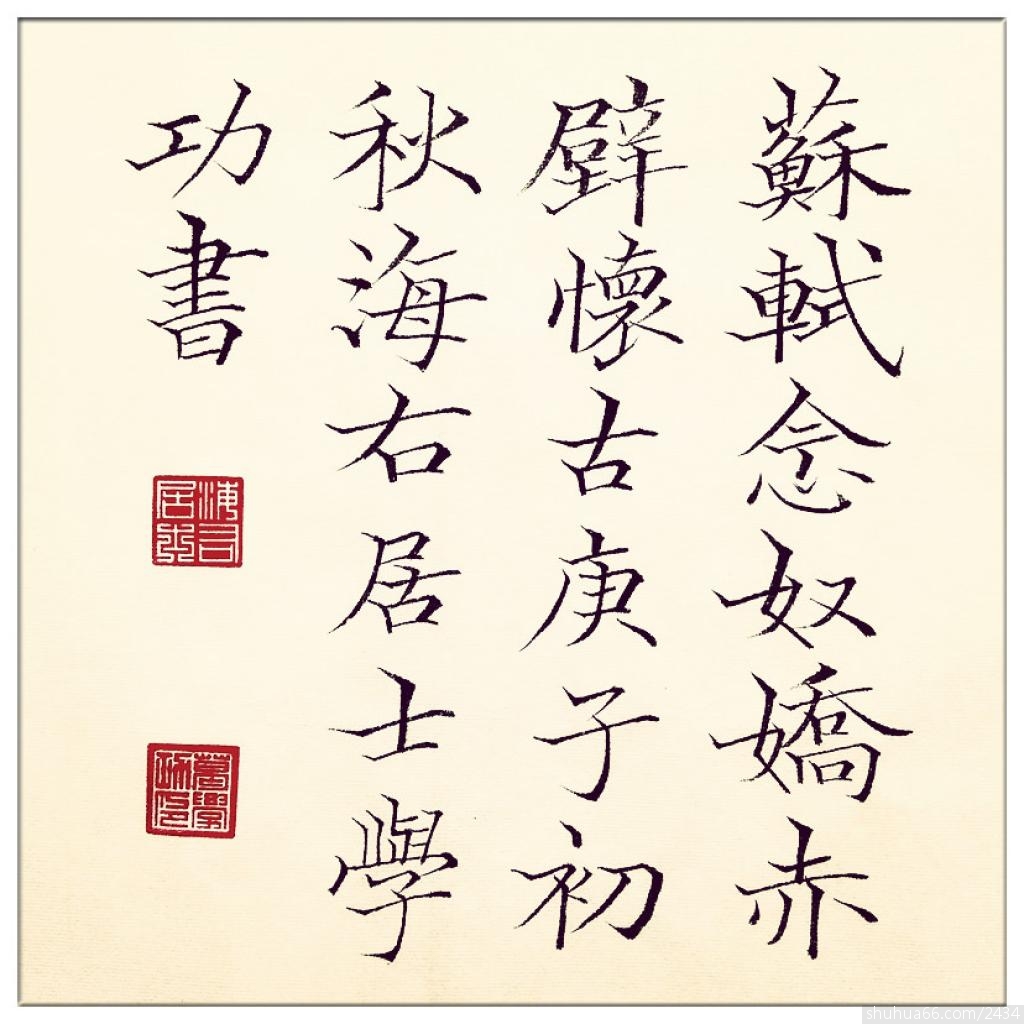 蘇軾念奴嬌赤
壁懷古庚子初
秋海右居士學
功書
海右居士
萬學功印
shuhua66.com/2434